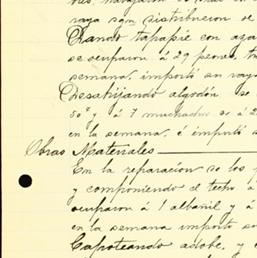 raya sqn distribucion se
Dando tapapié con aza
se ocuparon á 29 peones, tra
semana, importó su raya
Desahijando algodón se
50º y á 7 muchachos á 2
en la semana, é importó s
Obras Materiales
En la reparacion se los
y componiendo el techo á
ocuparon á 1 albañil y á
en la semana importó su
Zapoteando adobe, y